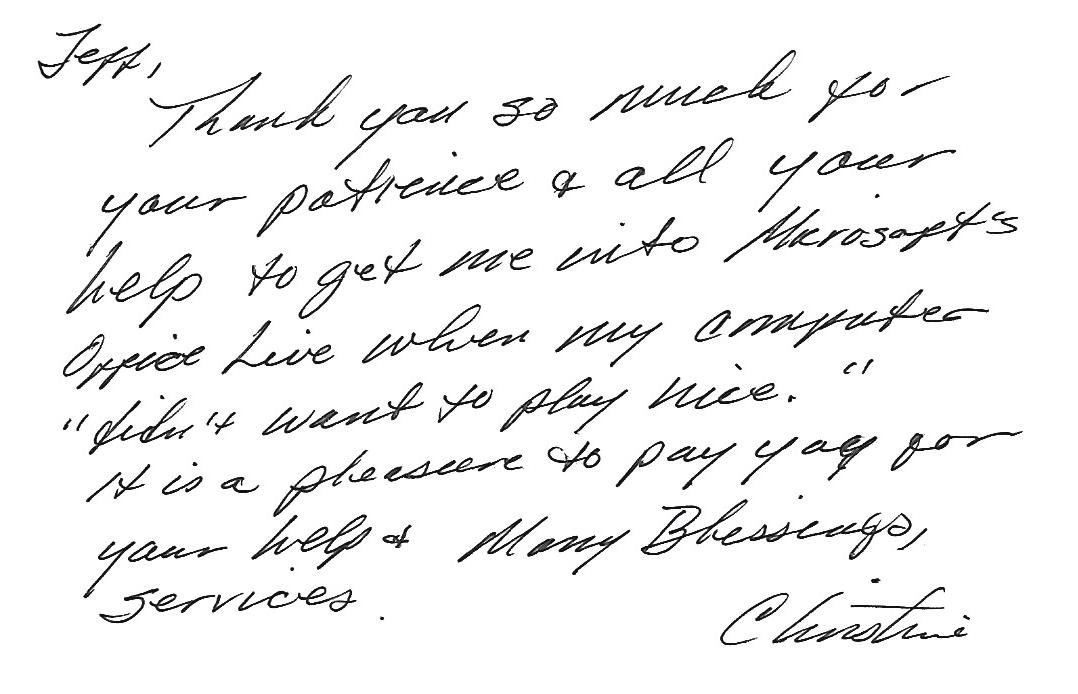 Jeff,
Thank you so much for
your patience & all your
help to get me into Microsoft's
Office Live when my computer
"didn't want to play nice."
It is a pleasure to pay you for
your help &
services.
Many Blessings,
Christine